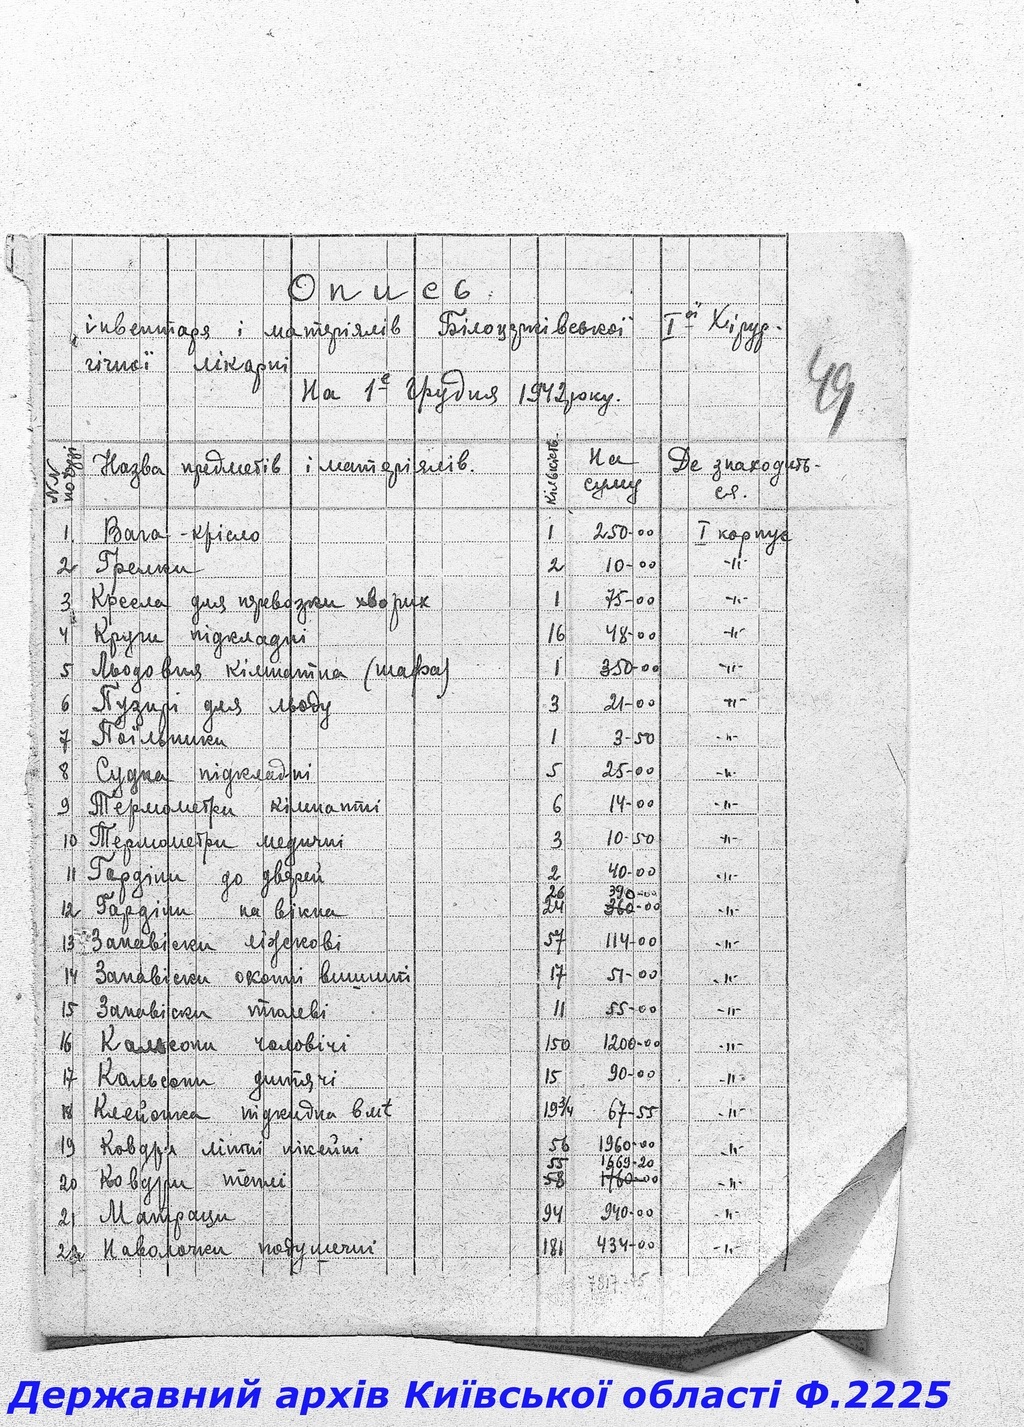 Опись
інвентаря і матеріялів Білоцерківської Iої Хірур-
гічної лікарні
На 1е Грудня 1942 року.
49
NN по ряду Назва предметів і матеріялів. Кількість. На суму Де знаходить-ся.
1. Вага-крісло 1 250-00 I корпус
2 Грелки 2 10-00 -"-
3 Кресла для перевозки хворих 1 75-00 -"-
4 Круги підкладні 16 48-00 -"-
5 Льодовня кімнатна (шафа) 1 350-00 -"-
6 Пузирі для льоду 3 21-00 -"-
7 Поїльники 1 3-50 -"-
8 Судна підкладні 5 25-00 -"-
9 Термометри кімнатні 6 14-00 -"-
10 Термометри медичні 3 10-50 -"-
11 Гардіни до дверей 2 40-00 -"-
26 390-00
12 Гардіни на вікна 24 360-00 -"-
13 Занавіски ліжкові 57 114-00 -"-
14 Занавіски оконні вишиті 17 51-00 -"-
15 Занавіски тюлеві 11 55-00 -"-
16 Кальсони чоловічі 150 1200-00 -"-
17 Кальсони дитячі 15 90-00 -"-
18 Клейонка підкидна в mt 19¾ 67-55 -"-
19 Ковдри літні пікейні 56 1960-00 -"-
55 1669-20
20 Ковдри теплі 58 1760-00 -"-
21 Матраци 94 940-00 -"-
22 Наволочки подушечні 181 434-00 -"-
Державний архів Київської області Ф.2225